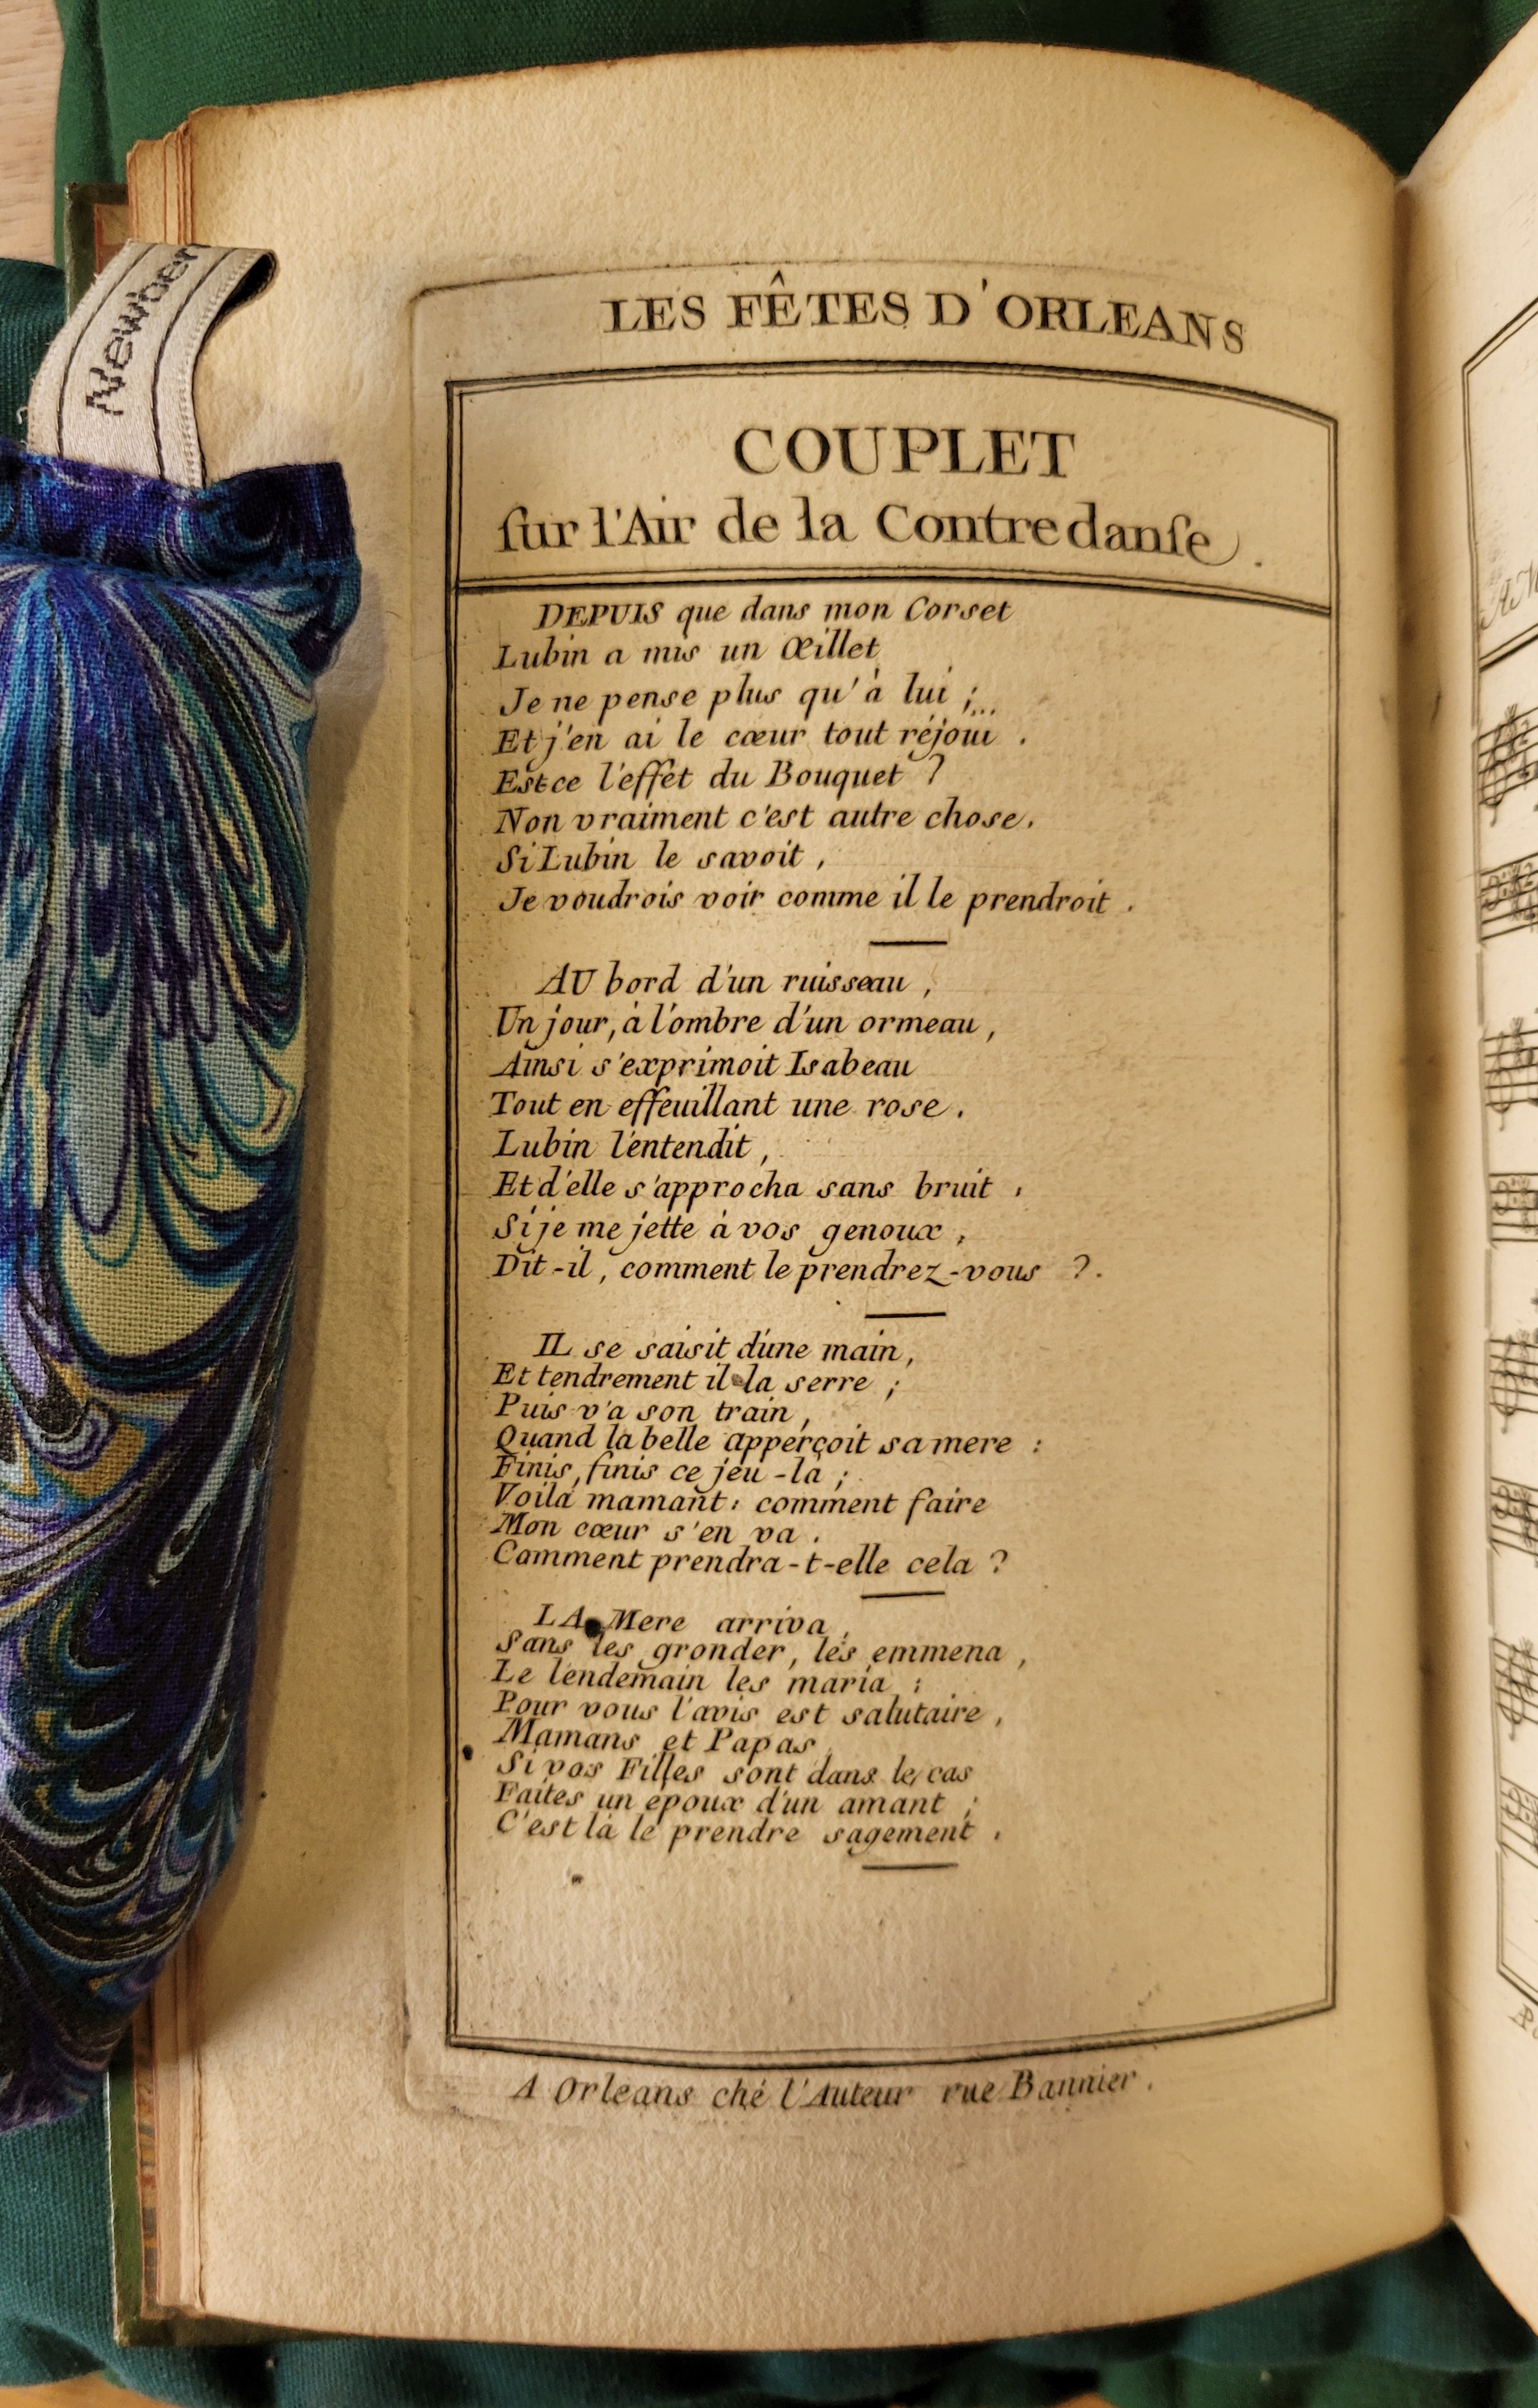 Newber
LES FÊTES D'ORLEANS
COUPLET
ſur l'Air de la Contredanſe.
DEPUIS que dans mon Corset
Lubin a mis un Œillet
Je ne pense plus qu'à lui ;...
Et j'en ai le cœur tout réjoui .
Est ce l'effet du Bouquet ?
Non vraiment c'est autre chose.
Si Lubin le savoit ,
Je voudrois voir comme il le prendroit .
AU bord d'un ruisseau ,
Un jour, à l'ombre d'un ormeau ,
Ainsi s'exprimoit Isabeau
Tout en effeuillant une rose .
Lubin l'entendit ,
Et d'elle s'approcha sans bruit ,
Si je me jette à vos genoux ,
Dit-il, comment le prendrez-vous ?.
IL se saisit d'une main,
Et tendrement il la serre ;
Puis v'a son train ,
Quand la belle apperçoit sa mere :
Finis, finis ce jeu-là ;
Voilà mamant: comment faire
Mon cœur s'en va .
Comment prendra-t-elle cela ?
LA Mere arriva ,
Sans les gronder, les emmena ,
Le lendemain les maria ;
Pour vous l'avis est salutaire ,
Mamans et Papas
Si vos Filles sont dans le cas
Faites un epoux d'un amant ;
C'est là le prendre sagement .
A Orleans ché l'Auteur rue Bannier .